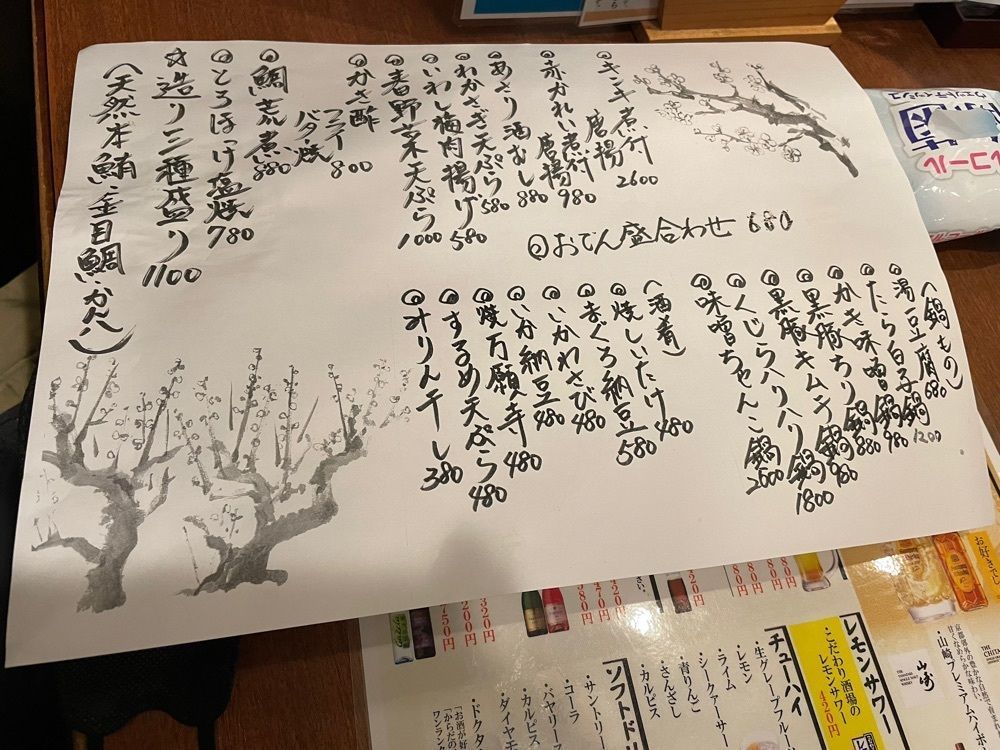 ◎キンキ煮付
唐揚 2600
◎赤かれい煮付
唐揚 980
◎あさり酒むし 880
◎わかさぎ天ぷら 580
◎いわし梅肉揚げ 580
◎春野菜天ぷら 1000
◎かき酢
フライ
バター焼 800
◎鯛荒煮 880
◎とろほっけ塩焼 780
☆造り三種盛り 1100
(天然本鮪・金目鯛・かんぱち)
◎おでん盛合わせ 680
(鍋もの)
◎湯豆腐 680
◎たら白子鍋 1200
◎かき味噌鍋 980
◎黒豚ちり鍋 880
◎黒豚キムチ鍋 980
◎くじらハリハリ鍋 1800
◎味噌ちゃんこ鍋 2600
(酒肴)
◎焼しいたけ 480
◎まぐろ納豆 580
◎いかわさび 480
◎いか納豆 480
◎焼万願寺 480
◎するめ天ぷら 480
◎みりん干し 380
コール
ウェットティッシュ
お好きでし
京都郊外の豊かな自然で育ま
甘くなめらかな味わい。
・山崎プレミアムハイボ
山崎
THE CHITA
レモンサワー
・こだわり酒場の
レモンサワー
420円
チューハイ
・生グレープフルー
・レモン
・ライム
・シークァーサー
・青りんご
・さんざし
・カルピス
ソフトドリ
・サントリー
・コーラ
・バヤリース
・カルピス
・ダイヤモ
・ドクタ
「お酒が好
「からだの
ワンラン
320円
200円
750円
420円
470円
380円
420円